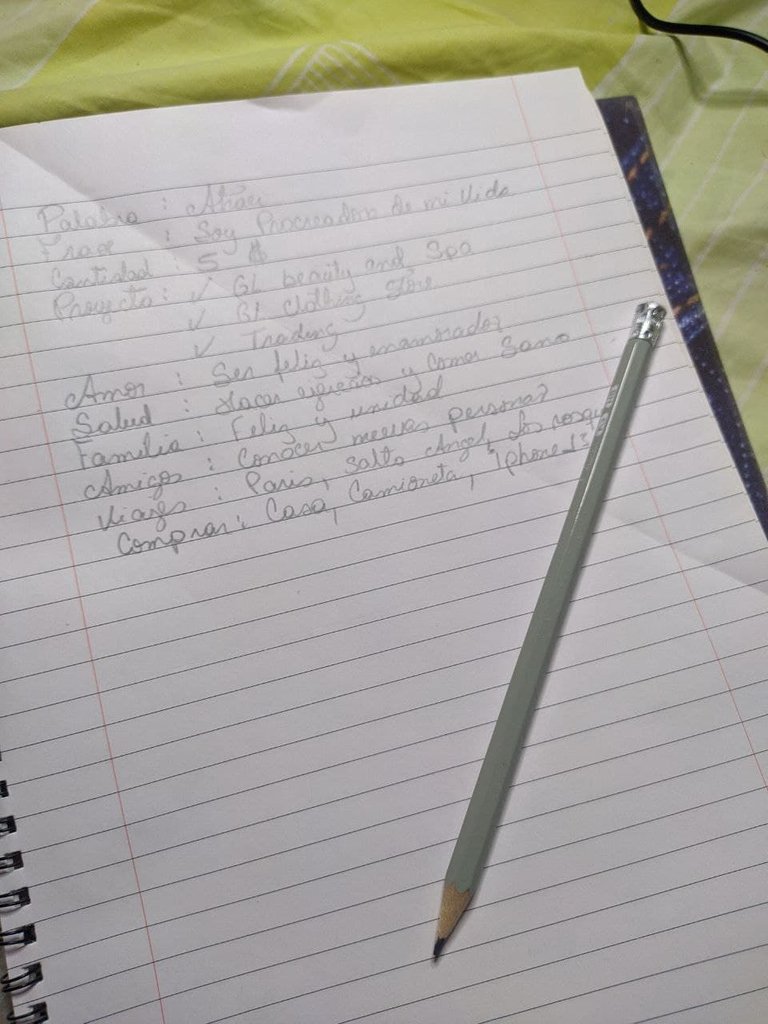 Palabra :
Frase : Soy Procreadora de mi Vida
Cantidad : 5 $
Proyecto : ✓ GL beauty and Spa
✓ GL clothing Store
✓ Trading
Amor : Ser feliz y enamorados
Salud : Hacer y Comer Sano
Familia : Feliz y unidad
Amigos : Conocer nuevas personas
Viages : Paris, Salto Angel, Los roques
Comprar : Casa, Camioneta, Iphone 13